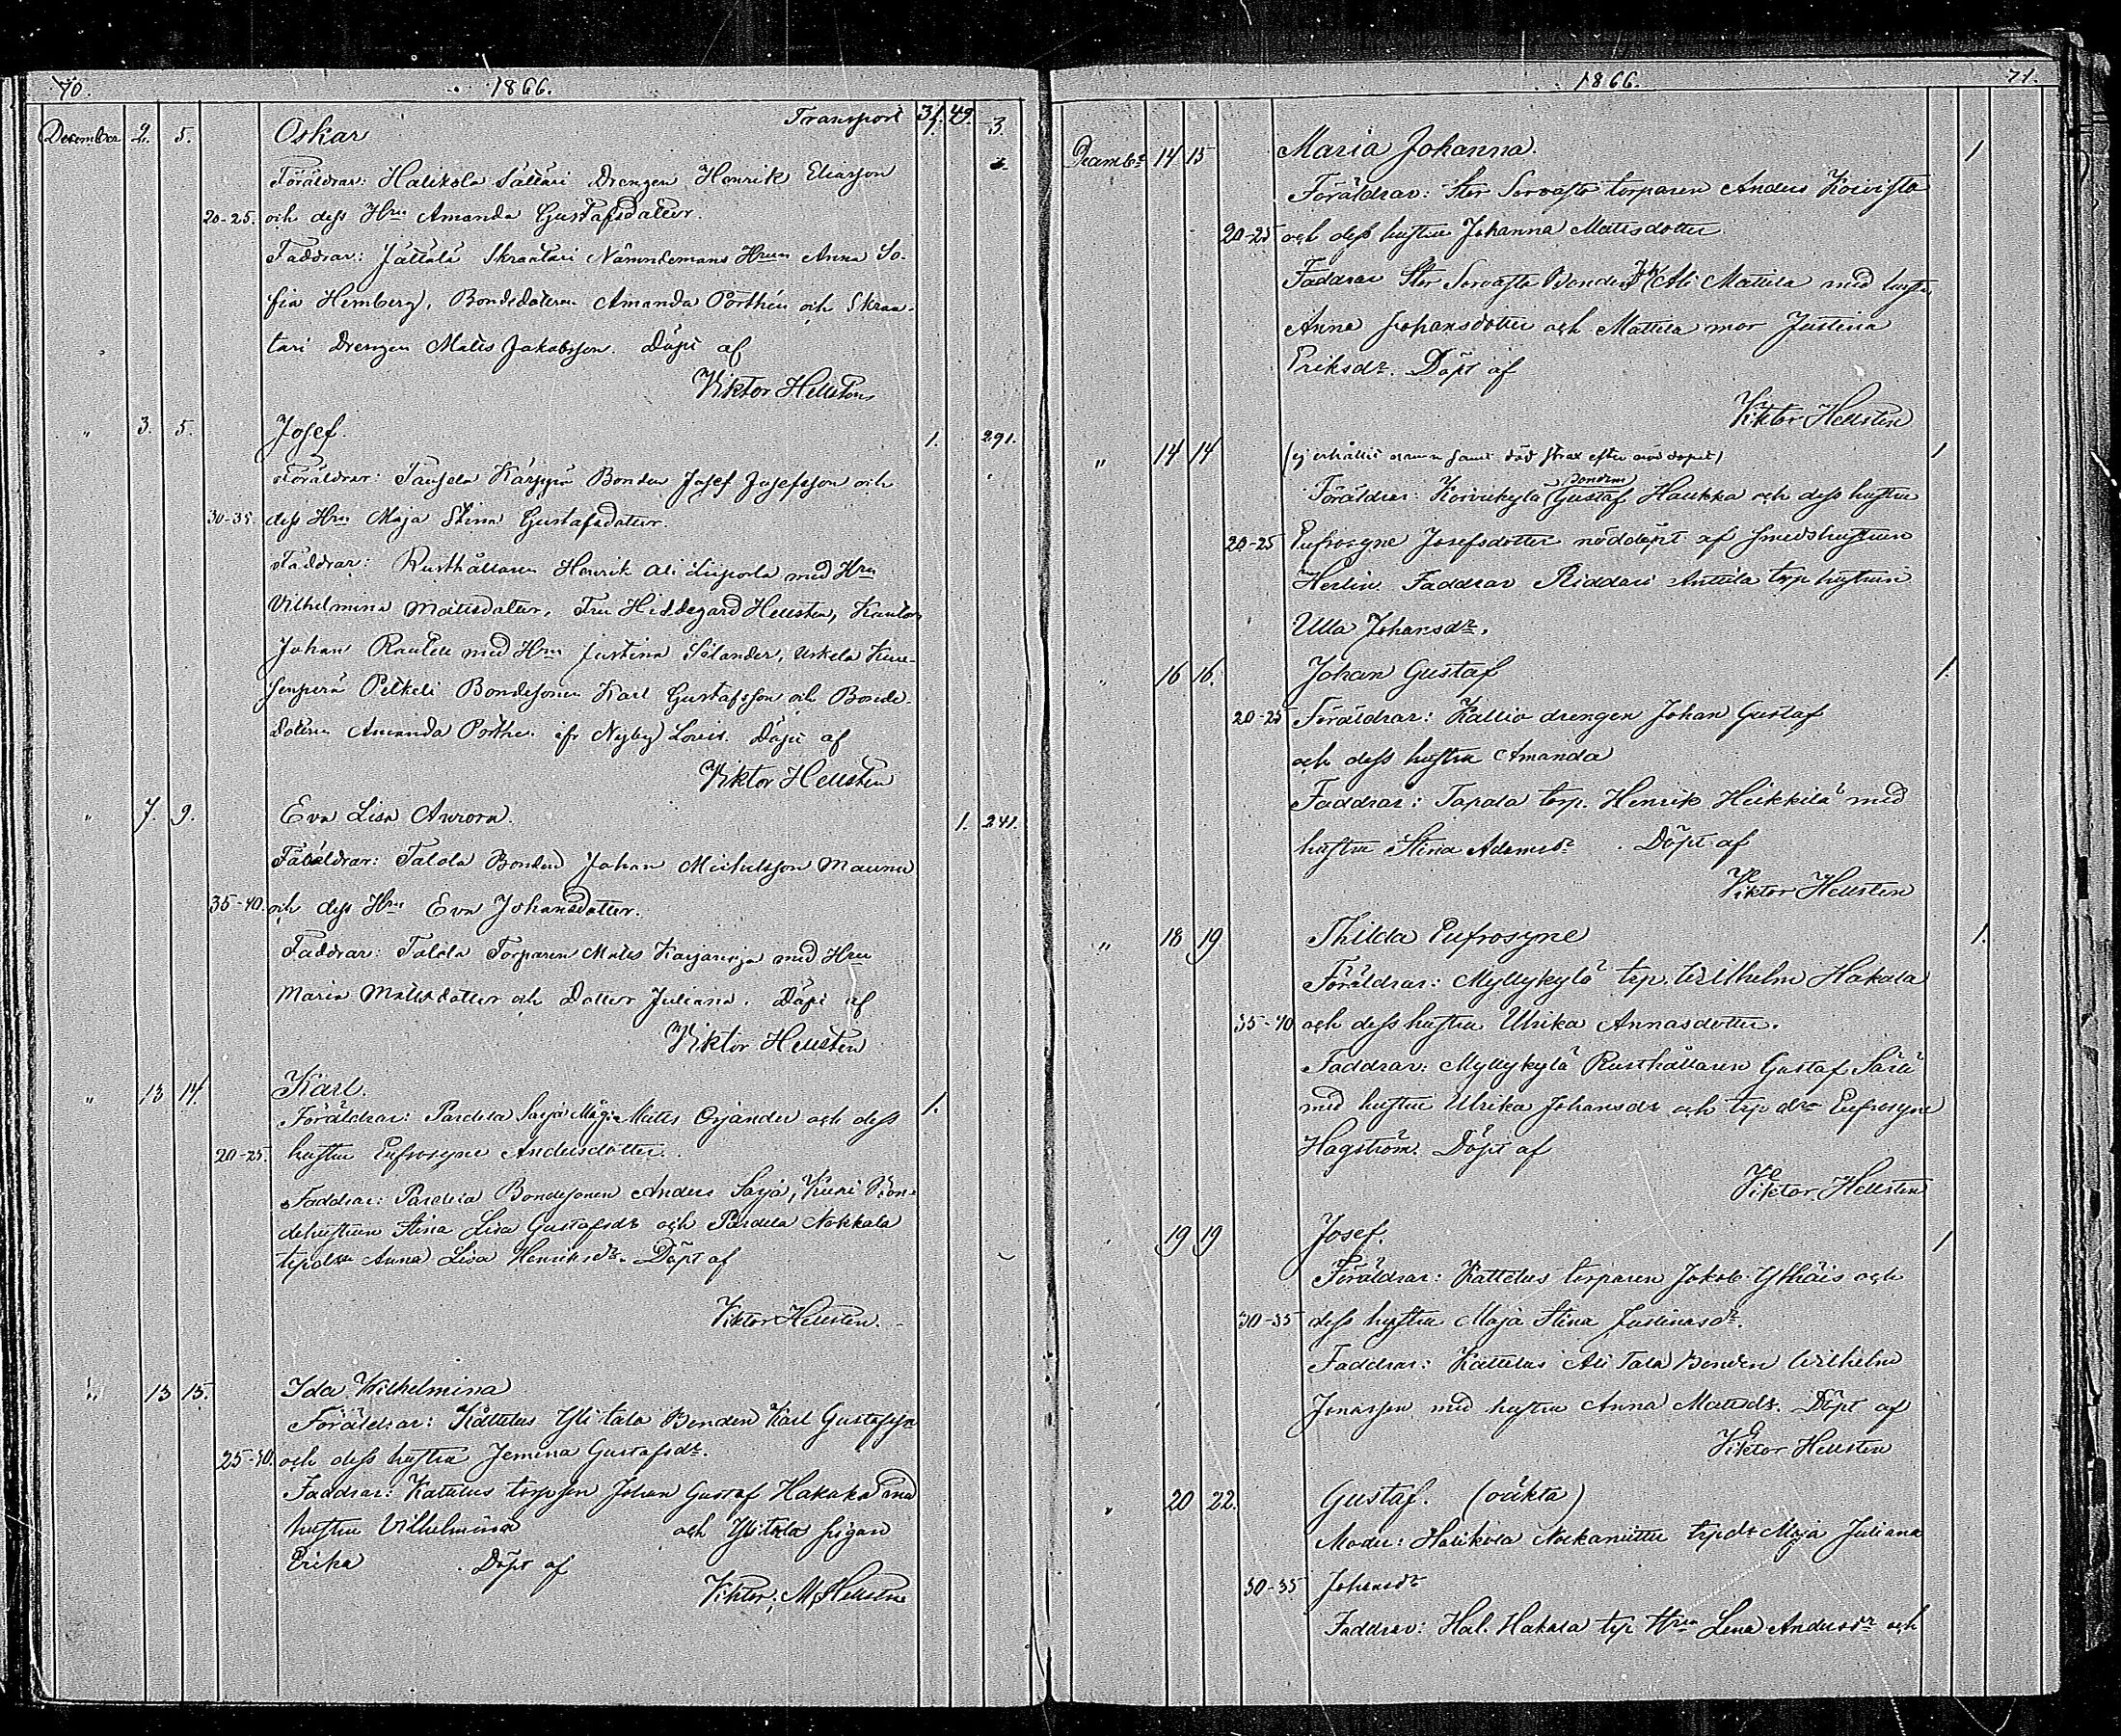 70. 1866.
Transport 31. 49. 3.
December 2. 5. Oskar
Föräldrar: Halikola Sälläri Drengen Henrik Eliasson
20-25. och dess Hru Amanda Gustafsdatter.
Faddrar: Jättälä Skraatari Nämndemans Hrun Anna So-
fia Hemberg, Bondedottren Amanda Porthén och Skraa-
tari Drengen Matts Jakobsson. Döpt af
Viktor Hellsten
" 3. 5. Josef. 1. 291.
Föräldrar: Bonden Josef Josefsson och
30-35. dess Hru Maja Stina Gustafsdatter.
Faddrar: Rusthållaren Henrik Ali med Hru
Vilhelmina Mattsdatter, Fru Hildegard Hellsten, Kantor
Johan med Hru Justina Selander, Uskela
Bondesonen Karl Gustafsson och Bonde-
dottren Amanda Porthen ifr Nyby Lovis. Döpt af
Viktor Hellsten
" 7. 9. Eva Lisa Aurora. 1. 241.
Föräldrar: Talola Bonden Johan Michelsson Maunu
35-40. och dess Hru Eva Johansdatter.
Faddrar: Talola Torparen Matts Karjanoja med Hru
Maria Mattsdatter och Dotter Juliana. Döpt af
Viktor Hellsten
" 13 14. Karl. 1.
Föräldrar: Pardela Sarja Måg. Matts och dess
20-25. hustru Eufrosyne Andersdotter.
Faddrar: Pardela Bondesonen Anders Sarja, Bon-
dehustrun Stina Lisa Gustafsdr och Pardela Nokkala
Anna Lisa Henriksdr. Döpt af
Viktor Hellsten.
" 13 15. Ida Wilhelmina
Föräldrar: Kättelus Yli tala Bonden Karl Gustafsson
25-30. och dess hustru Jemina Gustafsdr.
Faddrar: Johan Gustaf Hakala med
hustru Vilhelmina och Ylitala pigan
Erika. Döpt af
Viktor M. Hellsten
1866. 71.
Decembr 14 15 Maria Johanna. 1
Föräldrar: Stor Sorvasto torparen Anders Koivisto
20-25 och dess hustru Johanna Mattsdotter
Faddrar Stor Sorvasto Bonden Ali Mattila med hustru
Anna Johansdotter och Mattila mor Justina
Eriksdr. Döpt af
Viktor Hellsten
" 14 14 (ej erhållit namn samt död strax efter nöd dopet) 1
Föräldrar: Korvenkylä Bonden Gustaf Haukka och dess hustru
20-25 Eufrosyne Josefsdotter nöddöpt af smedshustrun
Herlin. Faddrar Riddari Anttila torp hustrun
Ulla Johansdr.
" 16 16. Johan Gustaf 1.
20-25 Föräldrar: Kallio drengen Johan Gustaf
och dess hustru Amanda
Faddrar: Tapala torp. Henrik Heikkilä med
hustru Stina Adamsdr. Döpt af
Viktor Hellsten
" 18 19 Thilda Eufrosyne 1.
Föräldrar: Myllykylä torp. Wilhelm Hakala
35-40 och dess hustru Ulrika Annasdotter.
Faddrar: Myllykylä Rusthållaren Gustaf Särä
med hustru Ulrika Johansdr och torp dr Eufrosyne
Hagström. Döpt af
Viktor Hellsten
" 19 19 Josef. 1
Föräldrar: Kattelus torparen Jakob och
30-35 dess hustru Maja Stina Justinasdr.
Faddrar: Kattelus Ali Tala Bonden Wilhelm
Jonasson med hustru Anna Mattsdr. Döpt af
Viktor Hellsten
" 20 22. Gustaf. (oäkta)
Moder: Halikola Maja Juliana
30-35 Johansdr
Faddrar: Hal. Hakala torp Hru Lena Andersdr och